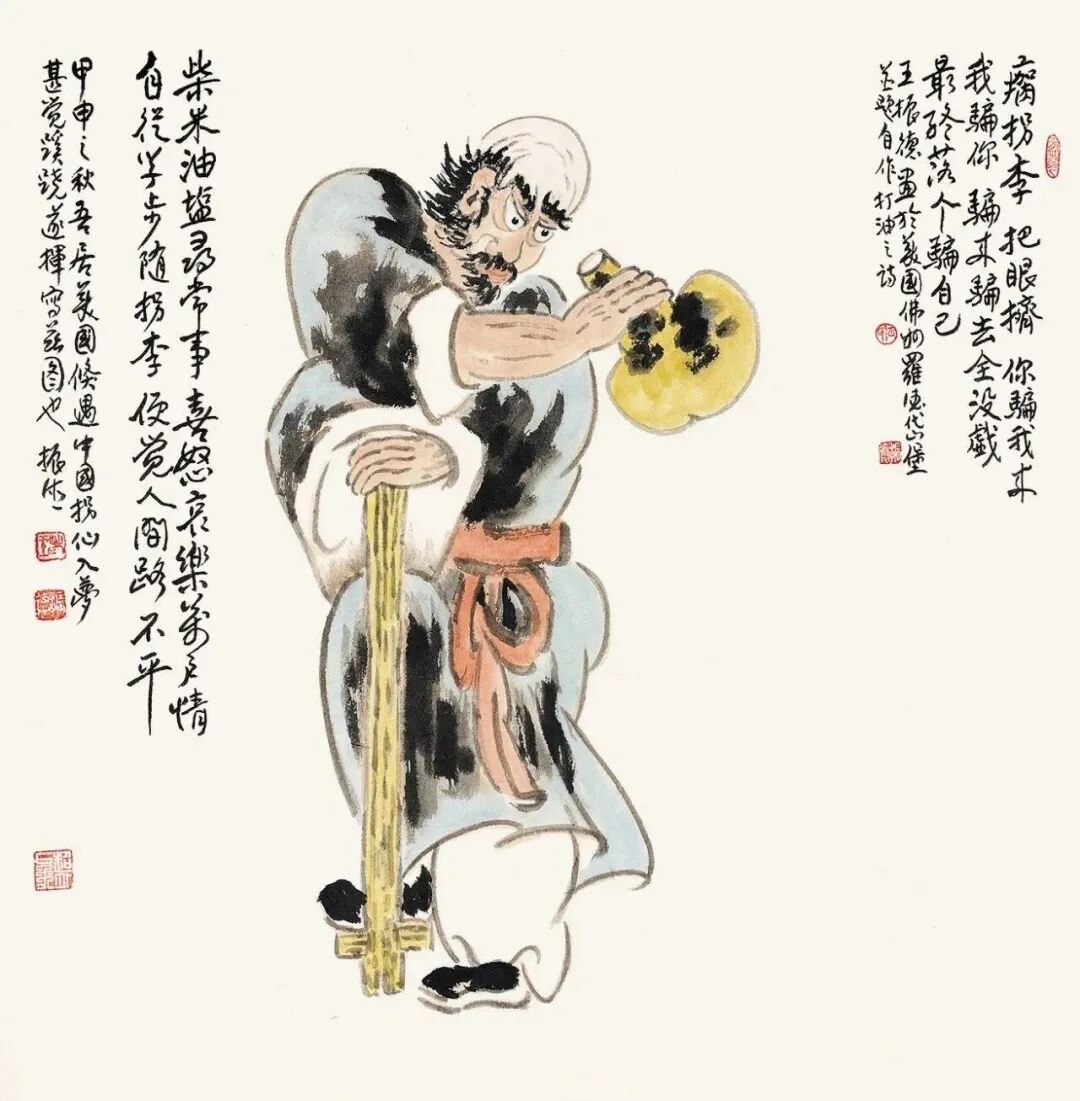 瘸拐李 把眼擠 你騙我来
我騙你 騙来騙去全没戲
最終落个騙自己
王振德畫於美國佛州羅德岱堡
并題自作打油之詩
柴米油盐尋常事 喜怒哀樂萬户情
自從学步随拐李 便觉人間路不平
甲申之秋吾居美國倏遇中國拐仙入夢
甚觉蹊跷遂揮写兹图也 振德